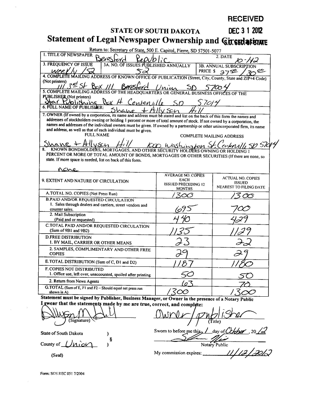 RECEIVED
DEC 31 2012
STATE OF SOUTH DAKOTA
Statement of Legal Newspaper Ownership and Circulation
Return to: Secretary of State, 500 E. Capitol, Pierre, SD 57501-5077
1. TITLE OF NEWSPAPER Beresford Republic 2. DATE 10/12
3. FREQUENCY OF ISSUE weekly/52
3A. NO. OF ISSUES PUBLISHED ANNUALLY 52
3B. ANNUAL SUBSCRIPTION PRICE $
4. COMPLETE MAILING ADDRESS OF KNOWN OFFICE OF PUBLICATION (Street, City, County, State and ZIP+4 Code) (Not printers)
Box 111 Beresford Union SD 57004
5. COMPLETE MAILING ADDRESS OF THE HEADQUARTERS OR GENERAL BUSINESS OFFICES OF THE
PUBLISHER (Not printers)
Star Publishing Box H Centerville SD 57014
6. FULL NAME OF PUBLISHER: Shane + Allyson Hill
7. OWNER (If owned by a corporation, its name and address must be stated and list on the back of this form the names and
addresses of stockholders owning or holding 1 percent or more of total amount of stock. If not owned by a corporation, the
names and addresses of the individual owners must be given. If owned by a partnership or other unincorporated firm, its name
and address, as well as that of each individual must be given.
FULL NAME COMPLETE MAILING ADDRESS
Shane + Allyson Hill Washington St Centerville SD 57014
8. KNOWN BONDHOLDERS, MORTGAGEES, AND OTHER SECURITY HOLDERS OWNING OR HOLDING 1
PERCENT OR MORE OF TOTAL AMOUNT OF BONDS, MORTGAGES OR OTHER SECURITIES (If there are none, so
state. If more space is needed, list on back of this form.
none
9. EXTENT AND NATURE OF CIRCULATION
AVERAGE NO. COPIES EACH ISSUED PRECEDING 12 MONTHS
ACTUAL NO. COPIES ISSUED NEAREST TO FILING DATE
A. TOTAL NO. COPIES (Net Press Run) 1300 1300
B. PAID AND/OR REQUESTED CIRCULATION
1. Sales through dealers and carriers, street vendors and counter sales. 695 700
2. Mail Subscription (Paid and or requested) 440 429
C. TOTAL PAID AND/OR REQUESTED CIRCULATION (Sum of 9B1 and 9B2) 1135 1129
D. FREE DISTRIBUTION
1. BY MAIL, CARRIER OR OTHER MEANS 23 22
2. SAMPLES, COMPLIMENTARY AND OTHER FREE COPIES 29 29
E. TOTAL DISTRIBUTION (Sum of C, D1 and D2) 1187 1180
F. COPIES NOT DISTRIBUTED
1. Office use, left over, unaccounted, spoiled after printing 50 50
2. Return from News Agents 63 70
G. TOTAL (Sum of E, F1 and F2 - Should equal net press run shown in A) 1300 1300
Statement must be signed by Publisher, Business Manager, or Owner in the presence of a Notary Public
I swear that the statements made by me are true, correct, and complete:
Allyson M Hill Owner/publisher
(Signature) (Title)
State of South Dakota )
§
County of Union )
Sworn to before me this 1 day of October, 2012
Notary Public
(Seal) My commission expires: 11/12/2012